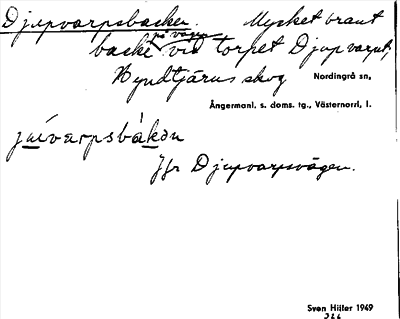 Djupvarpsbacken. Mycket brant
på vägen
backe vid torpet Djupvarpet,
Hyndtjärns skog Nordingrå sn,
Ångermanl. s. doms. tg., Västernorrl. l.
Jfr Djupvarpsvägen.
Sven Hiller 1949